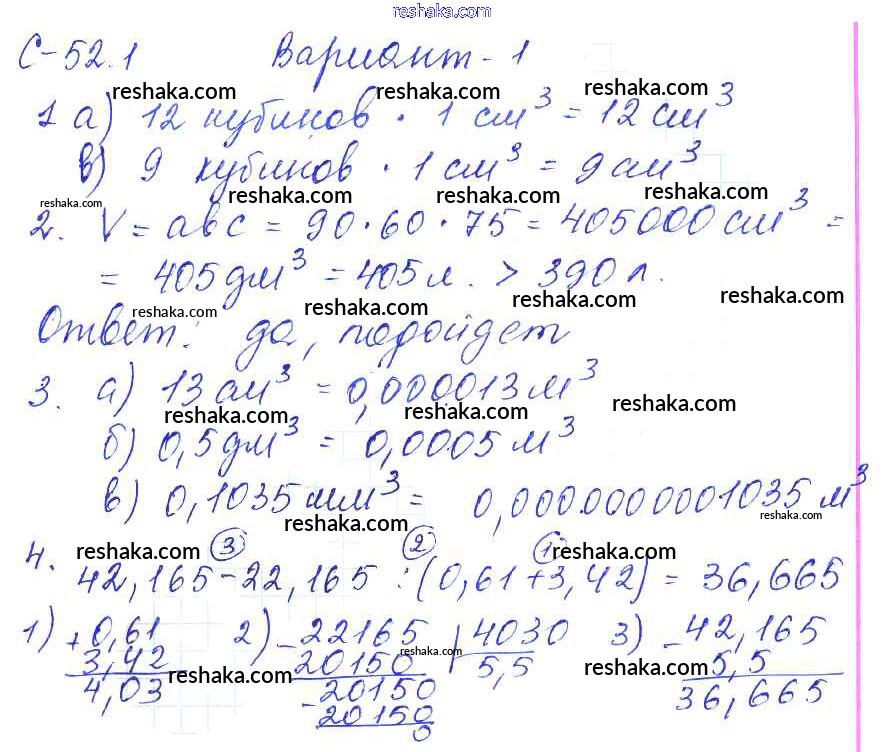 reshaka.com
С-52.1 Вариант-1
reshaka.com reshaka.com reshaka.com
1 а) 12 кубиков · 1 см³ = 12 см³
в) 9 кубиков · 1 см³ = 9 см³
reshaka.com reshaka.com reshaka.com reshaka.com
2. V = abc = 90·60·75 = 405000 см³ =
= 405 дм³ = 405 л. > 390 л.
reshaka.com reshaka.com reshaka.com reshaka.com
Ответ: да, подойдет
3. а) 13 см³ = 0,000013 м³
reshaka.com reshaka.com reshaka.com
б) 0,5 дм³ = 0,0005 м³
в) 0,1035 мм³ = 0,0000000001035 м³
reshaka.com reshaka.com
reshaka.com ③ ② ①
4. 42,165 - 22,165 : (0,61 + 3,42) = 36,665
1) + 0,61 2) - 22165 | 4030 3) - 42,165
3,42 20150 5,5 5,5
reshaka.com reshaka.com reshaka.com
4,03 - 20150 36,665
20150
0